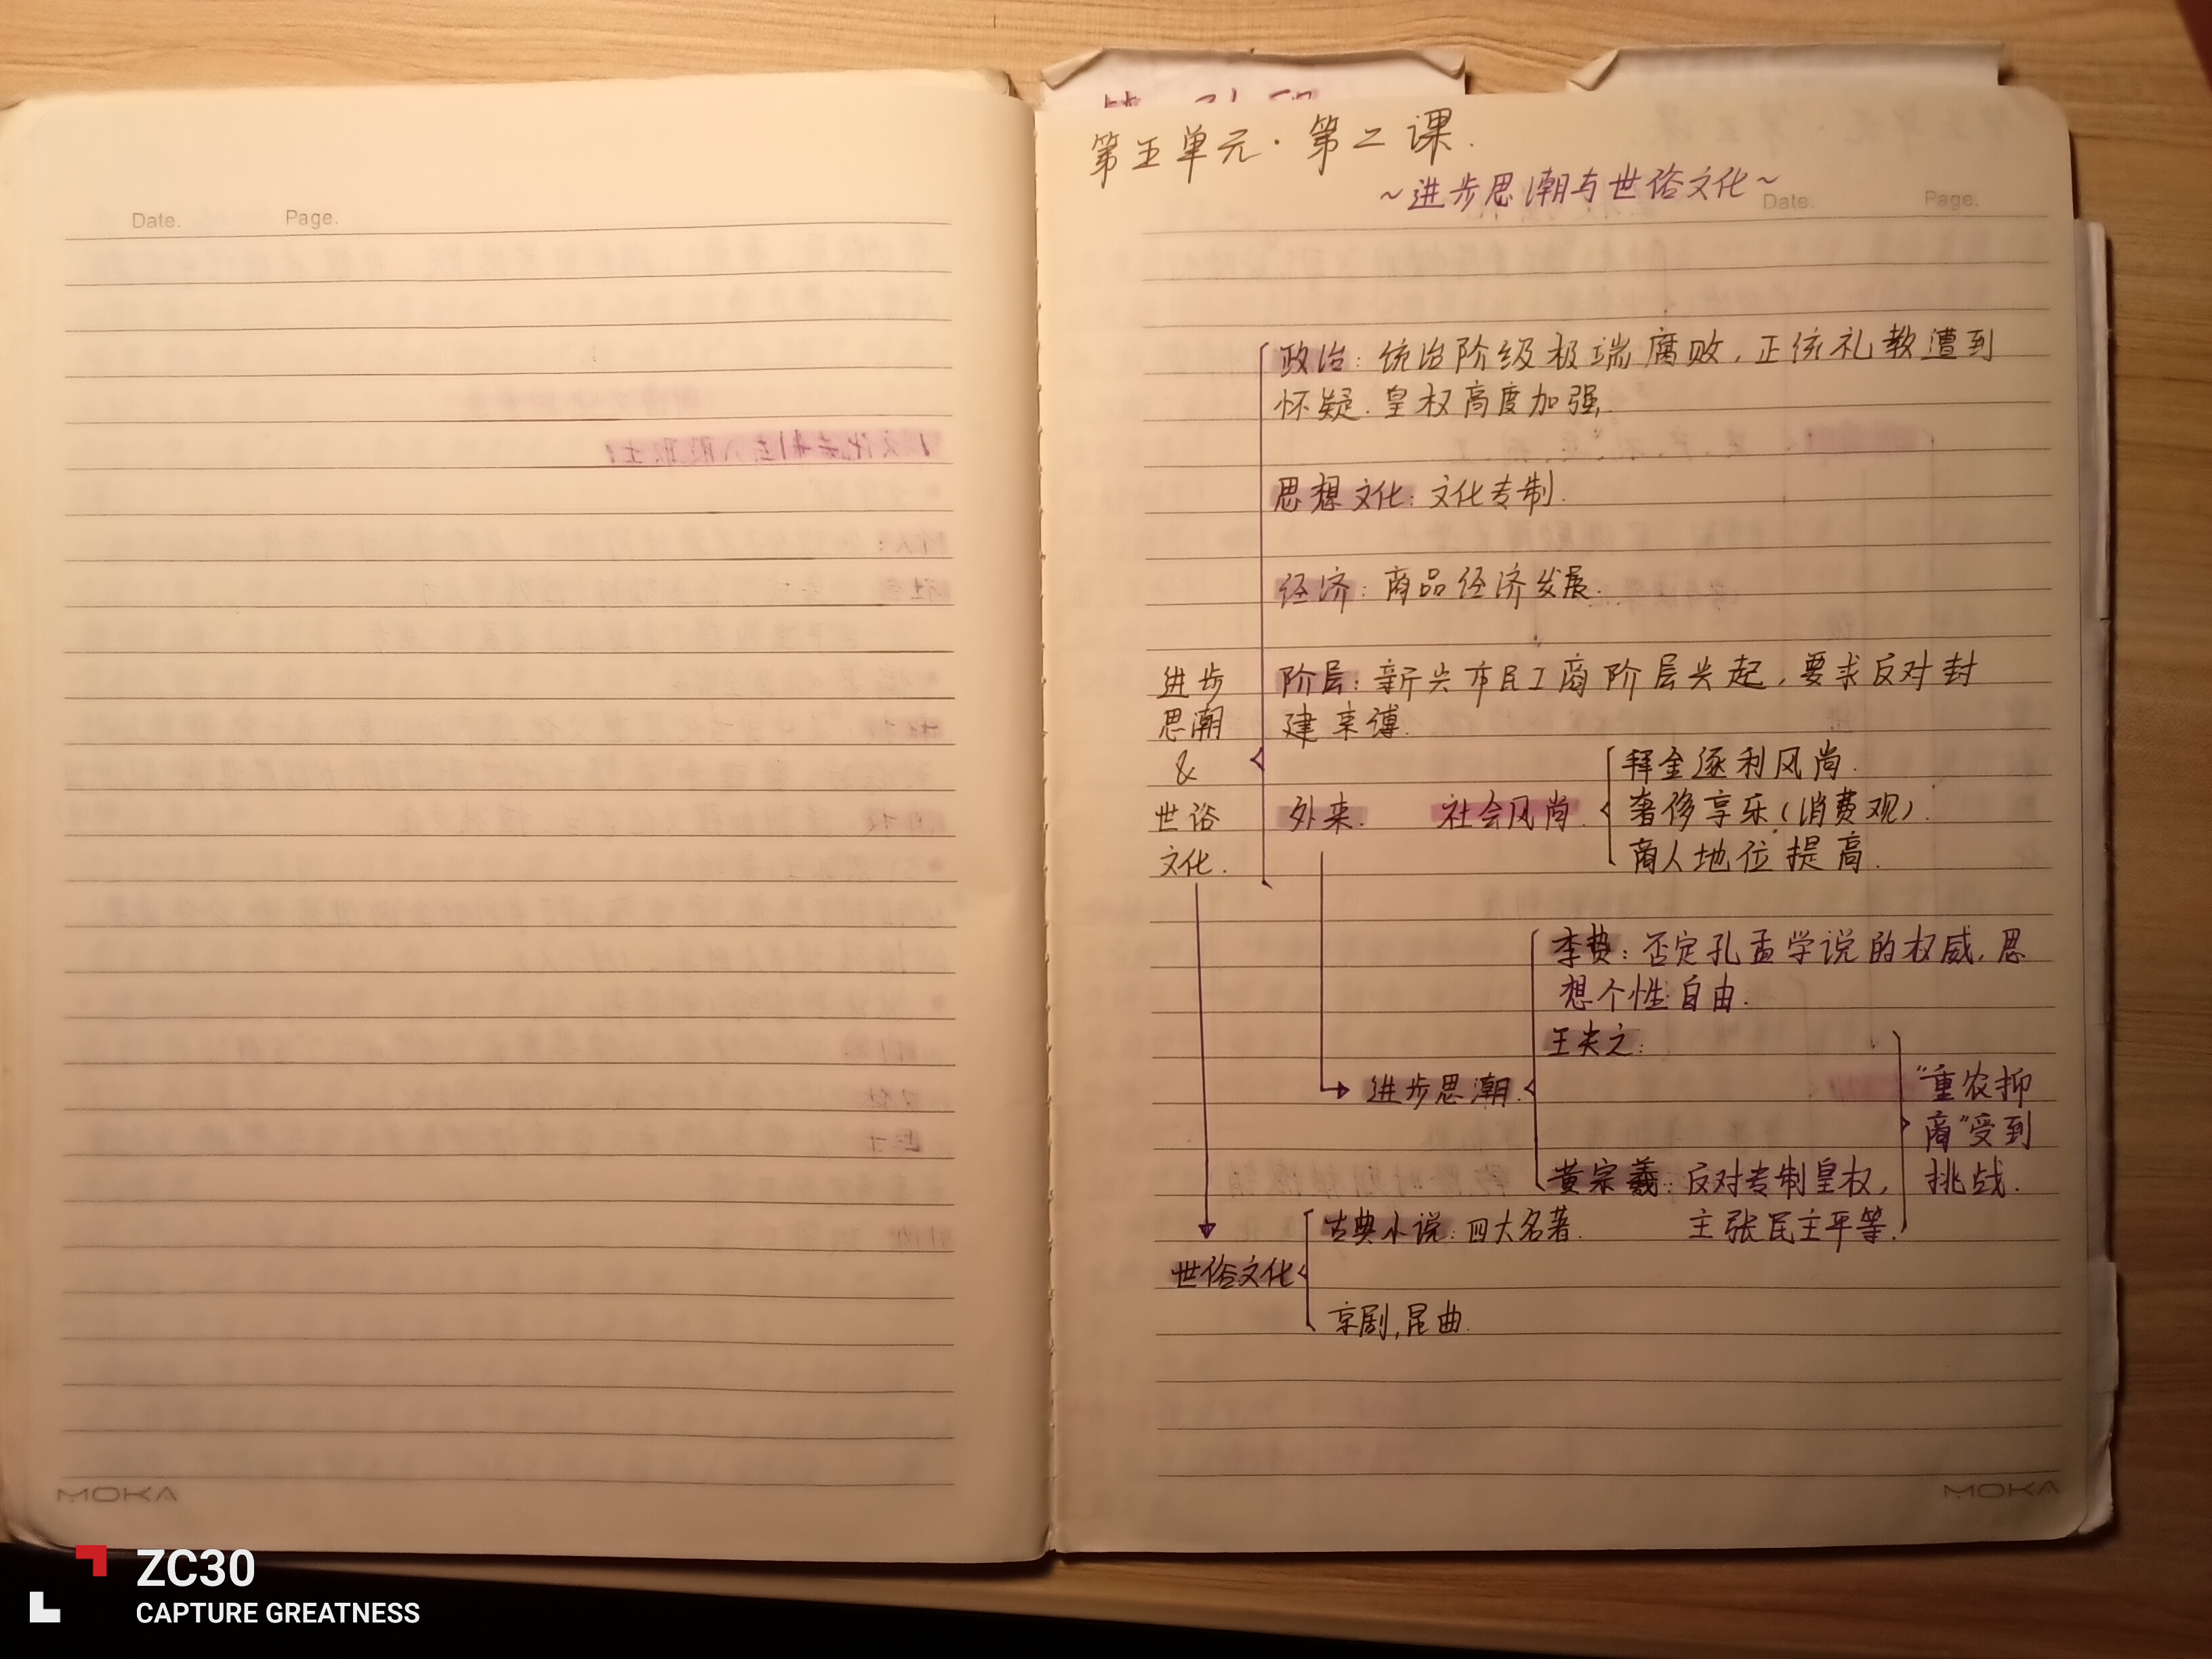 Date. Page.
第五单元·第二课.
~进步思潮与世俗文化~
Date. Page.
政治：统治阶级极端腐败，正统礼教遭到
怀疑.皇权高度加强.
思想文化：文化专制.
经济：商品经济发展.
进步
思潮
&
世俗
文化.
阶层：新兴市民工商阶层兴起，要求反对封
建束缚.
外来.
社会风尚.
拜金逐利风尚.
奢侈享乐(消费观).
商人地位提高.
进步思潮.
李贽：否定孔孟学说的权威，思
想个性自由.
王夫之：
黄宗羲：反对专制皇权，
主张民主平等.
"重农抑
商"受到
挑战.
世俗文化
古典小说：四大名著.
京剧,昆曲.
MOKA
MOKA
ZC30
CAPTURE GREATNESS